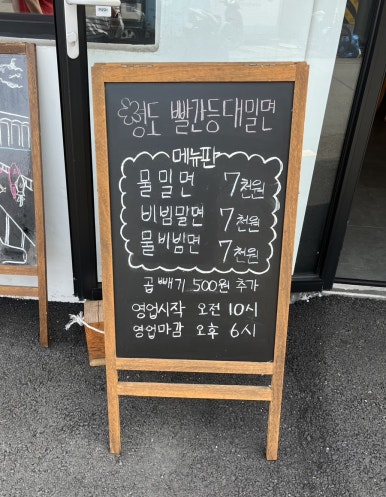 영도 빨간등대밀면
메뉴판
물밀면 7천원
비빔밀면 7천원
물비빔면 7천원
곱빼기 500원 추가
영업시작 오전 10시
영업마감 오후 6시